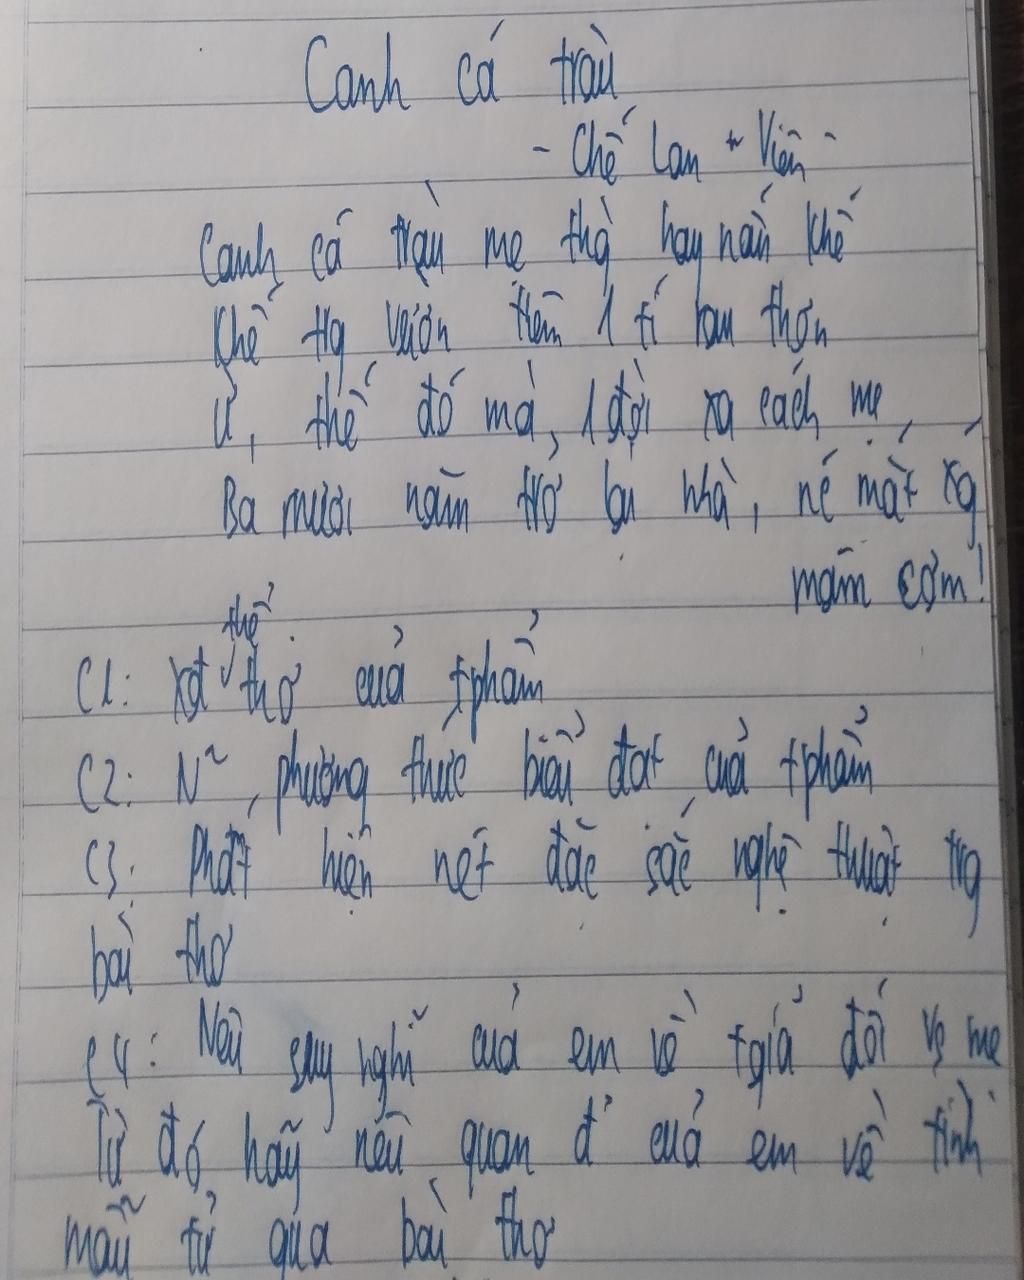 Canh cá tràu
- Chế Lan Viên -
Canh cá tràu mẹ thờ hay nấu khế
Khế trg vườn thêm 1 tí rau thơm
Ừ, thế đó mà, 1 đời xa cách mẹ
Ba mươi năm trở lại nhà, né mắt xg
mâm cơm!
C1: Xđ thể thơ của tphẩm
C2: N², phương thức biểu đạt của tphẩm
C3: Phát hiện nét đặc sắc nghệ thuật trg
bài thơ
C4: Nêu suy nghĩ của em về tgiả đối vs mẹ
Từ đó hãy nêu quan đ' của em về tình
mẫu tử qua bài thơ